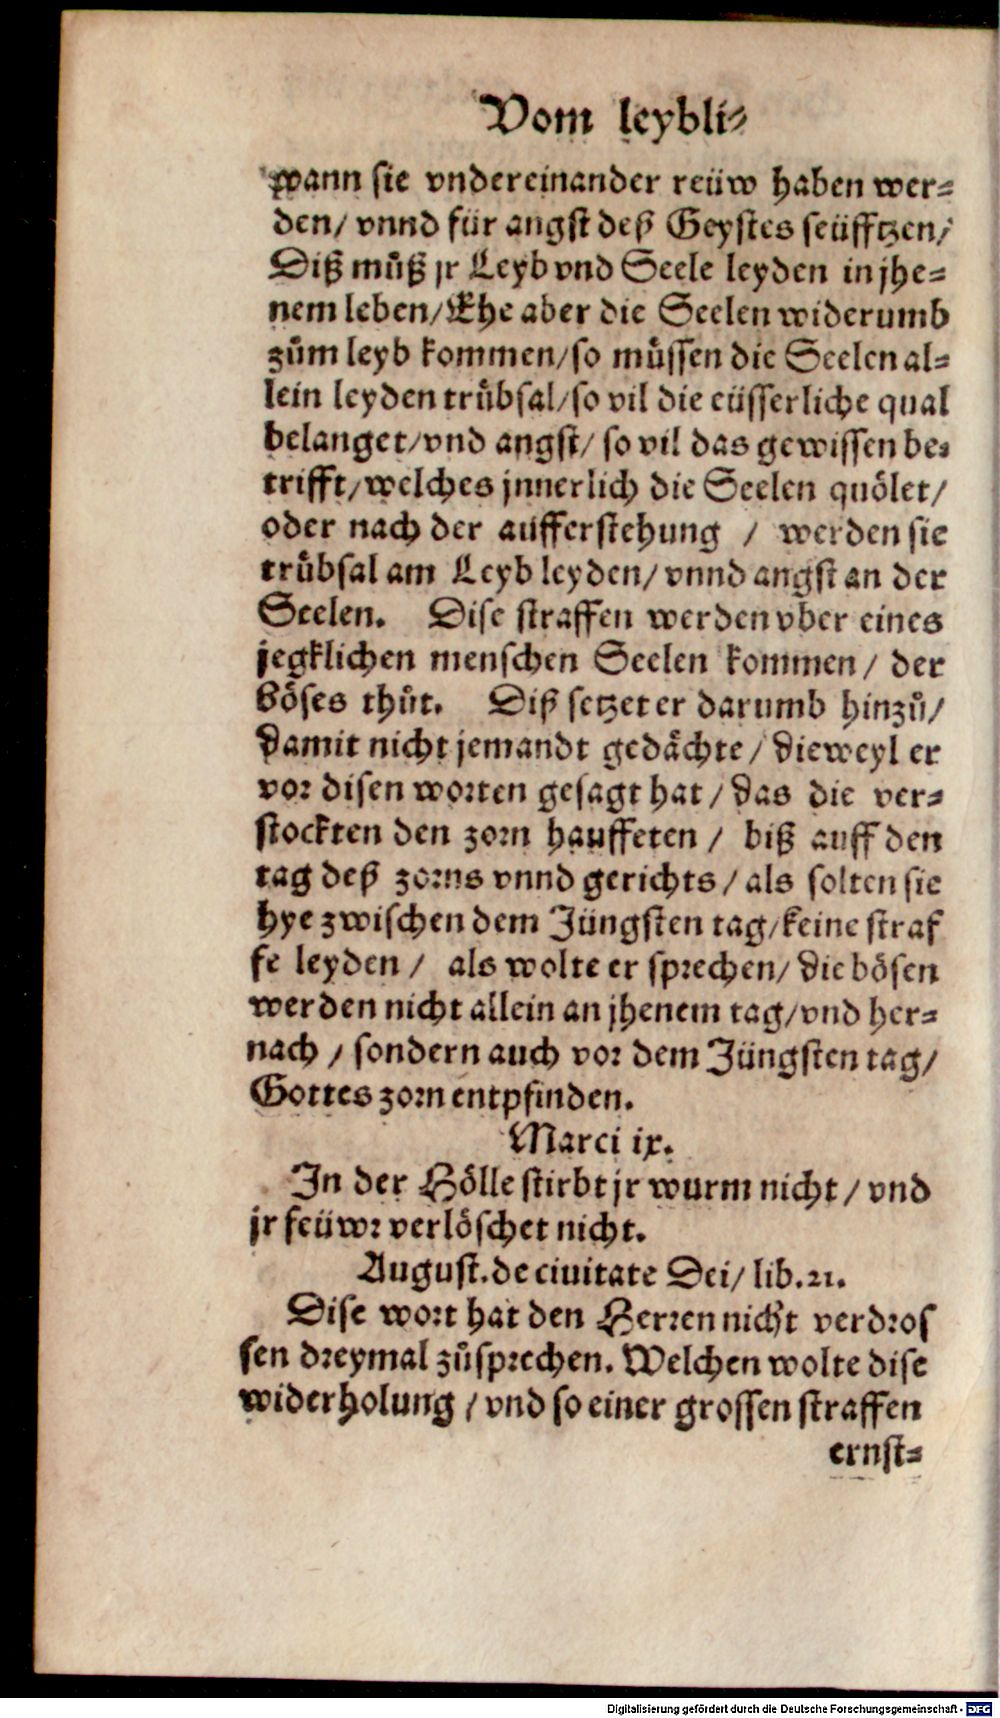 Vom leybli⸗
wann sie vndereinander reüw haben wer⸗
den/ vnnd für angst deß Geystes seüfftzen/
Diß můß jr Leyb vnd Seele leyden in jhe⸗
nem leben/ Ehe aber die Seelen widerumb
zům leyb kommen/ so müssen die Seelen al⸗
lein leyden trübsal/ so vil die eüsserliche qual
belanget/ vnd angst/ so vil das gewissen be⸗
trifft/ welches jnnerlich die Seelen quölet/
oder nach der aufferstehung / werden sie
trübsal am Leyb leyden/ vnnd angst an der
Seelen. Dise straffen werden vber eines
jegklichen menschen Seelen kommen/ der
böses thůt. Diß setzet er darumb hinzů/
damit nicht jemandt gedächte/ dieweyl er
vor disen worten gesagt hat/ das die ver⸗
stockten den zorn hauffeten / biß auff den
tag deß zorns vnnd gerichts/ als solten sie
hye zwischen dem Jüngsten tag/ keine straf
fe leyden / als wolte er sprechen/ die bösen
werden nicht allein an jhenem tag/ vnd her⸗
nach / sondern auch vor dem Jüngsten tag/
Gottes zorn entpfinden.
Marci ix.
In der Hölle stirbt jr wurm nicht / vnd
jr feüwr verlöschet nicht.
August. de ciuitate Dei/ lib. 21.
Dise wort hat den Herren nicht verdros
sen dreymal zůsprechen. Welchen wolte dise
widerholung / vnd so einer grossen straffen
ernst⸗
Digitalisierung gefördert durch die Deutsche Forschungsgemeinschaft - DFG